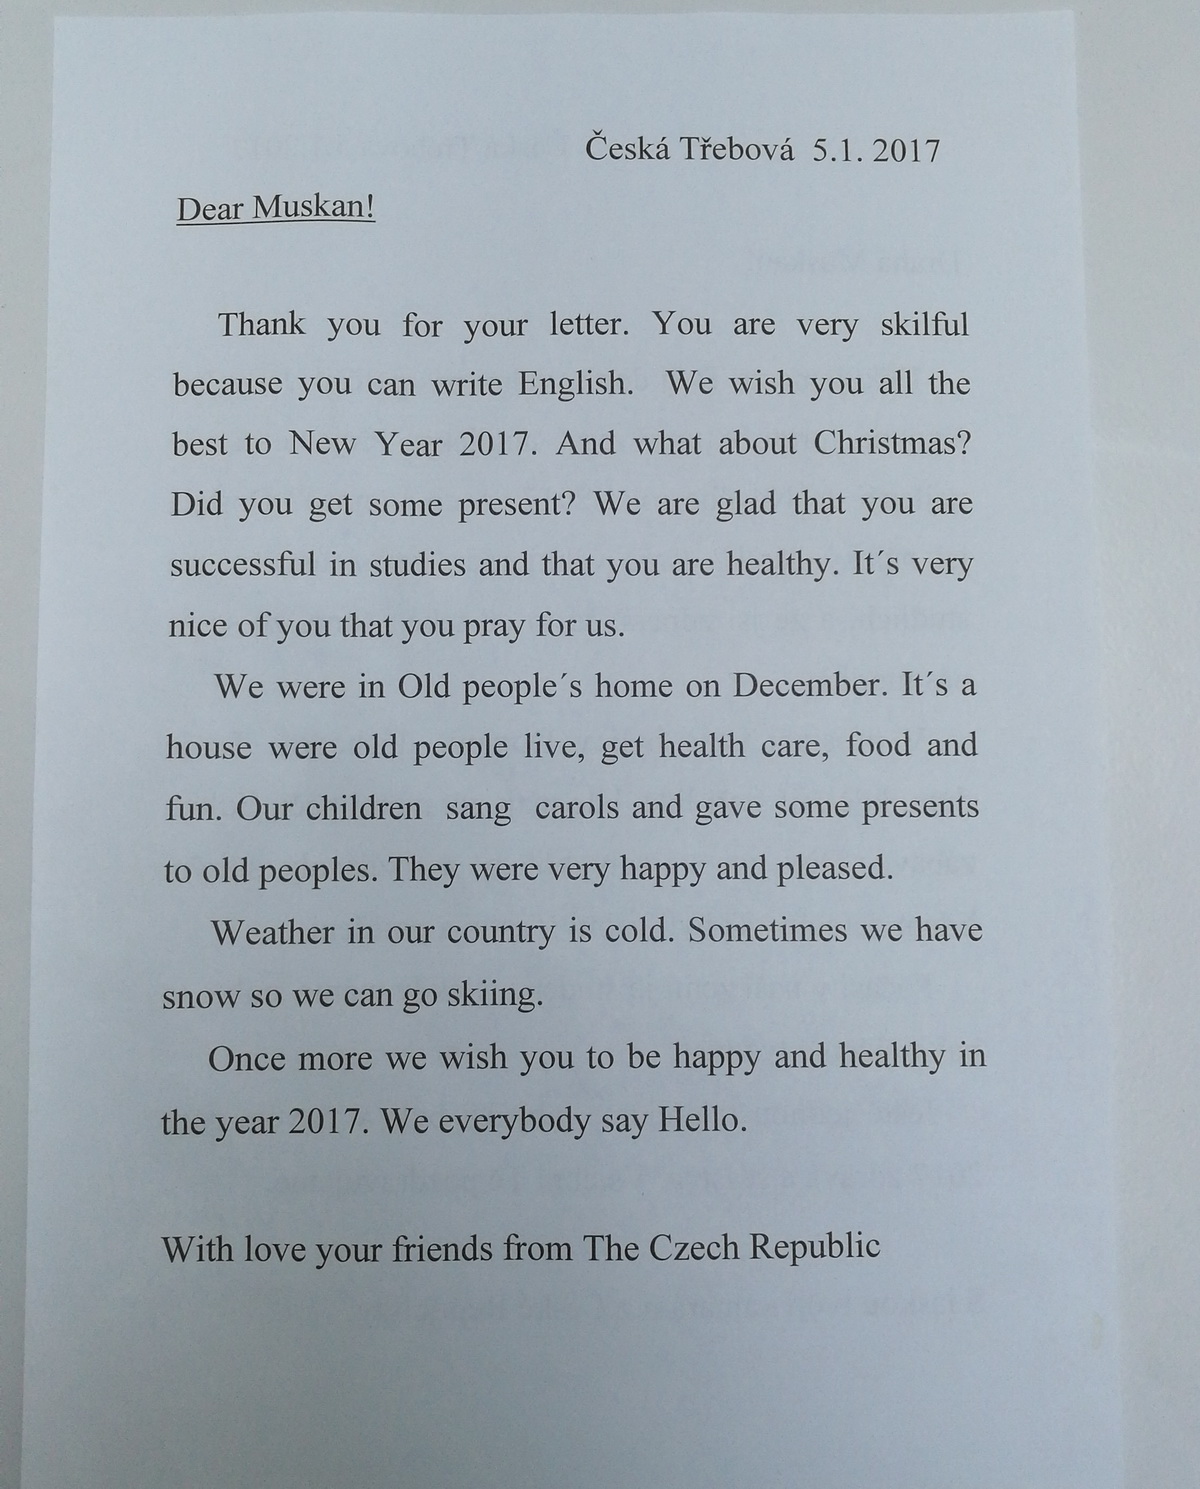 Česká Třebová 5.1. 2017
Dear Muskan!
Thank you for your letter. You are very skilful
because you can write English. We wish you all the
best to New Year 2017. And what about Christmas?
Did you get some present? We are glad that you are
successful in studies and that you are healthy. It´s very
nice of you that you pray for us.
We were in Old people´s home on December. It´s a
house were old people live, get health care, food and
fun. Our children sang carols and gave some presents
to old peoples. They were very happy and pleased.
Weather in our country is cold. Sometimes we have
snow so we can go skiing.
Once more we wish you to be happy and healthy in
the year 2017. We everybody say Hello.
With love your friends from The Czech Republic